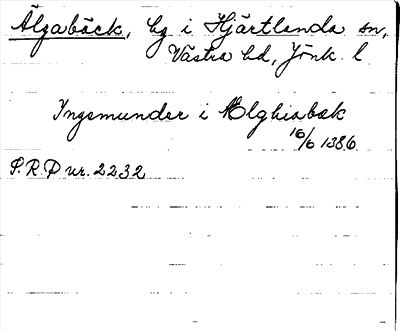 Älgabäck, by i Hjärtlanda sn,
Västra hd, Jönk. l
Yngemunder i Ælghiabæk
16/6 1386
S.R.P nr. 2232